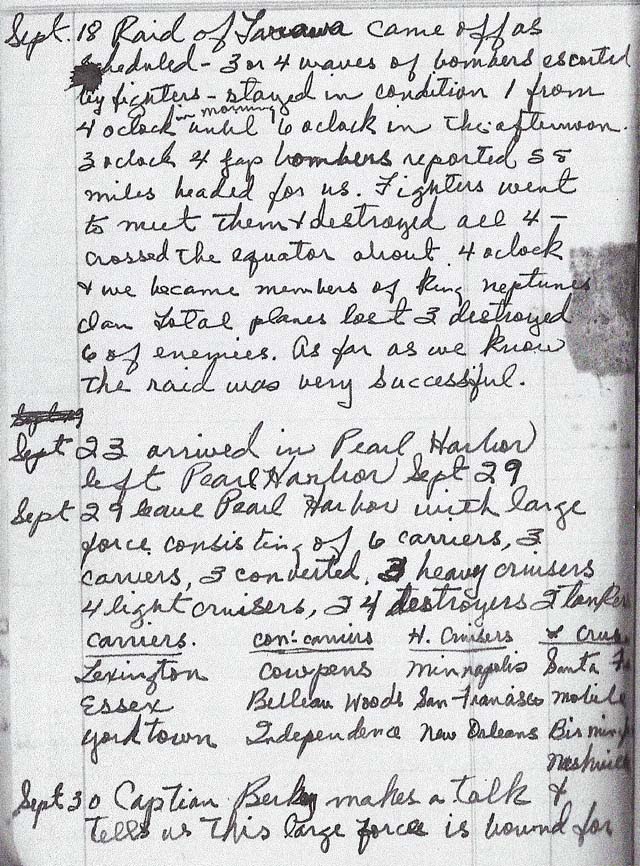 Sept. 18 Raid of Tarawa came off as
scheduled - 3 or 4 waves of bombers escorted
by fighters - stayed in condition 1 from
4 oclock in morning until 6 oclock in the afternoon.
3 oclock 4 Jap bombers reported 58
miles headed for us. Fighters went
to meet them & destroyed all 4 -
crossed the equator about 4 oclock
& we became members of King neptunes
clan Total planes lost 3 destroyed
6 of enemies. As far as we know
the raid was very successful.
Sept 23 arrived in Pearl Harbor
left Pearl Harbor Sept 29
Sept 29 leave Pearl Harbor with large
force consisting of 6 carriers, 3
carriers, 3 converted, 3 heavy cruisers
4 light cruisers, 24 destroyers 2 tanker
carriers. con. carriers H. Cruisers L Cruise
Lexington Cowpens Minnapolis Santa F
Essex Belleau Woods San Francisco mobile
yorktown Independence New Orleans Birming
Nashville
Sept 30 Captian makes a talk &
tells us this large force is bound for